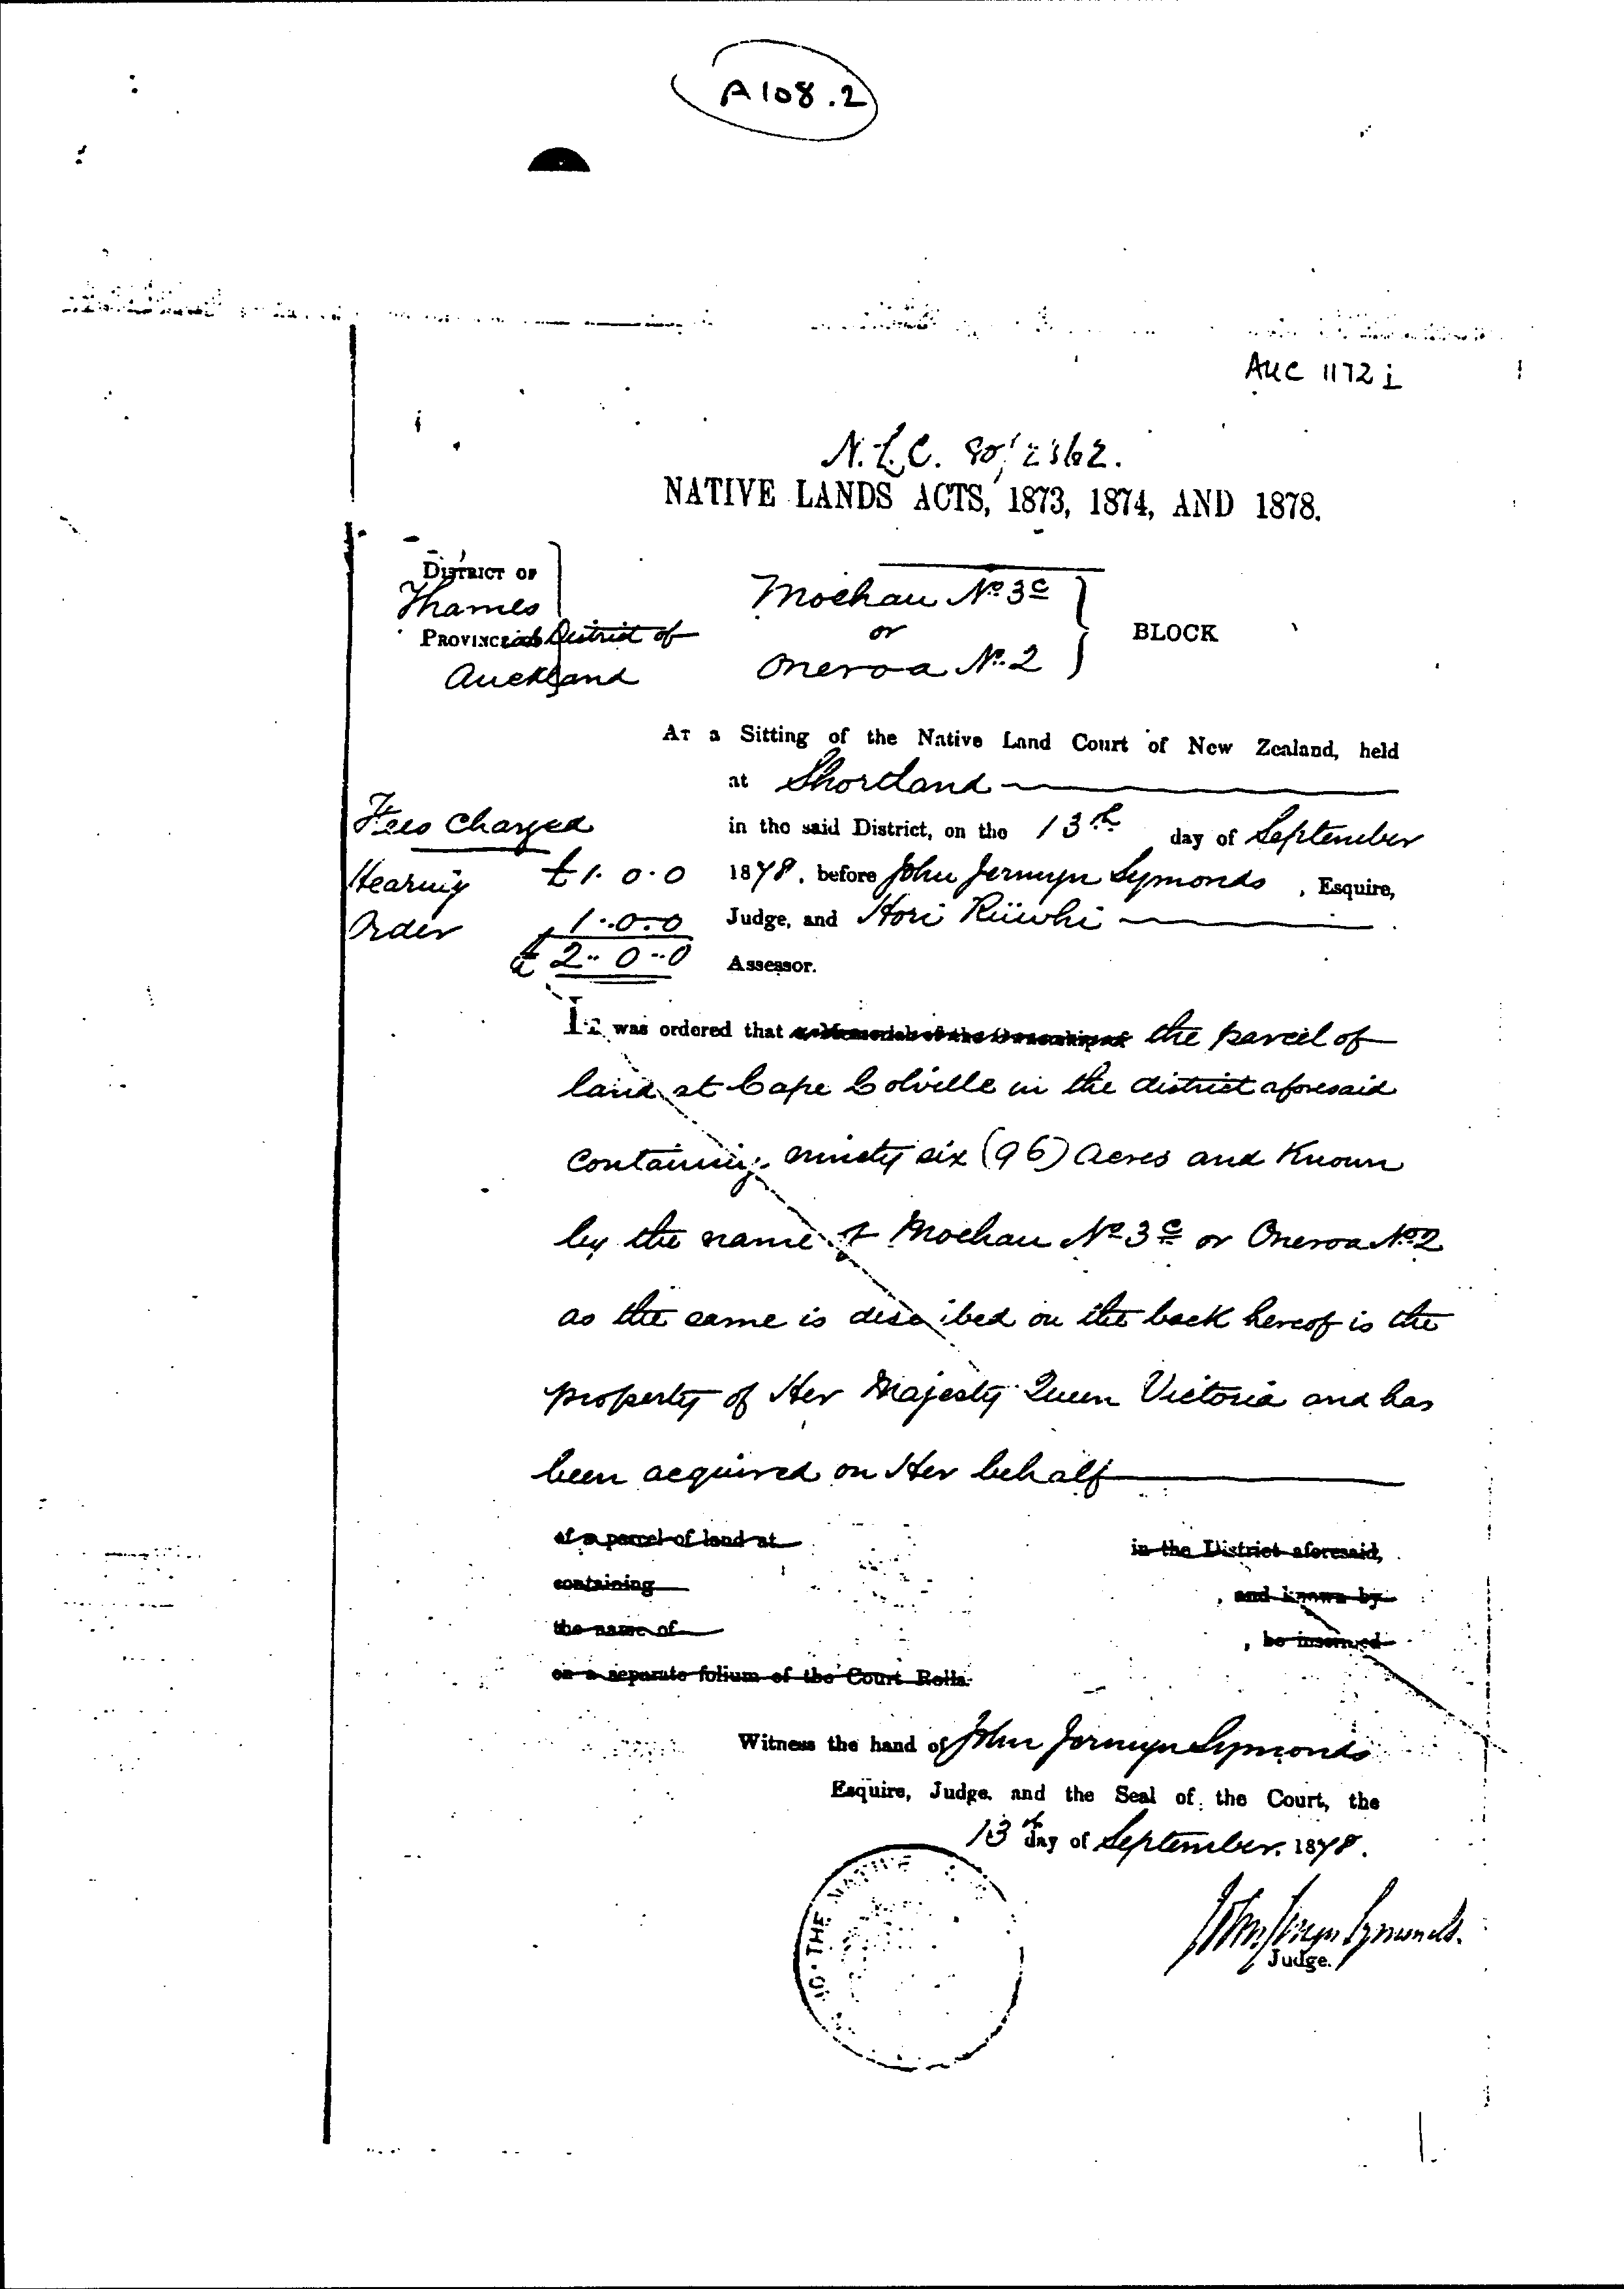 A108.2
AUC 1172 i
N.L.C. 80/2362.
NATIVE LANDS ACTS, 1873, 1874, AND 1878.
DISTRICT OF
Thames
PROVINCial District of
Auckland
Moehau No 3C
or
Oneroa No. 2
BLOCK
AT a Sitting of the Native Land Court of New Zealand, held
at Shortland
in the said District, on the 13th day of September
1878, before John Jermyn Symonds, Esquire,
Judge, and Hori Riiwhi
Assessor.
Fees Charged
Hearing £1.0.0
Order 1..0..0
£2..0..0
It was ordered that a Memorial of the Ownership of the parcel of
land at Cape Colville in the district aforesaid
containing ninety six (96) acres and Known
by the name of Moehau No 3C or Oneroa No 2
as the same is described on the back hereof is the
property of Her Majesty Queen Victoria and has
been acquired on Her behalf
of a parcel of land at in the District aforesaid,
containing , and known by
the name of , be inserted
on a separate folium of the Court Rolls.
Witness the hand of John Jermyn Symonds
Esquire, Judge, and the Seal of the Court, the
13th day of September. 1878.
John Jermyn Symonds.
Judge.
THE NATIVE